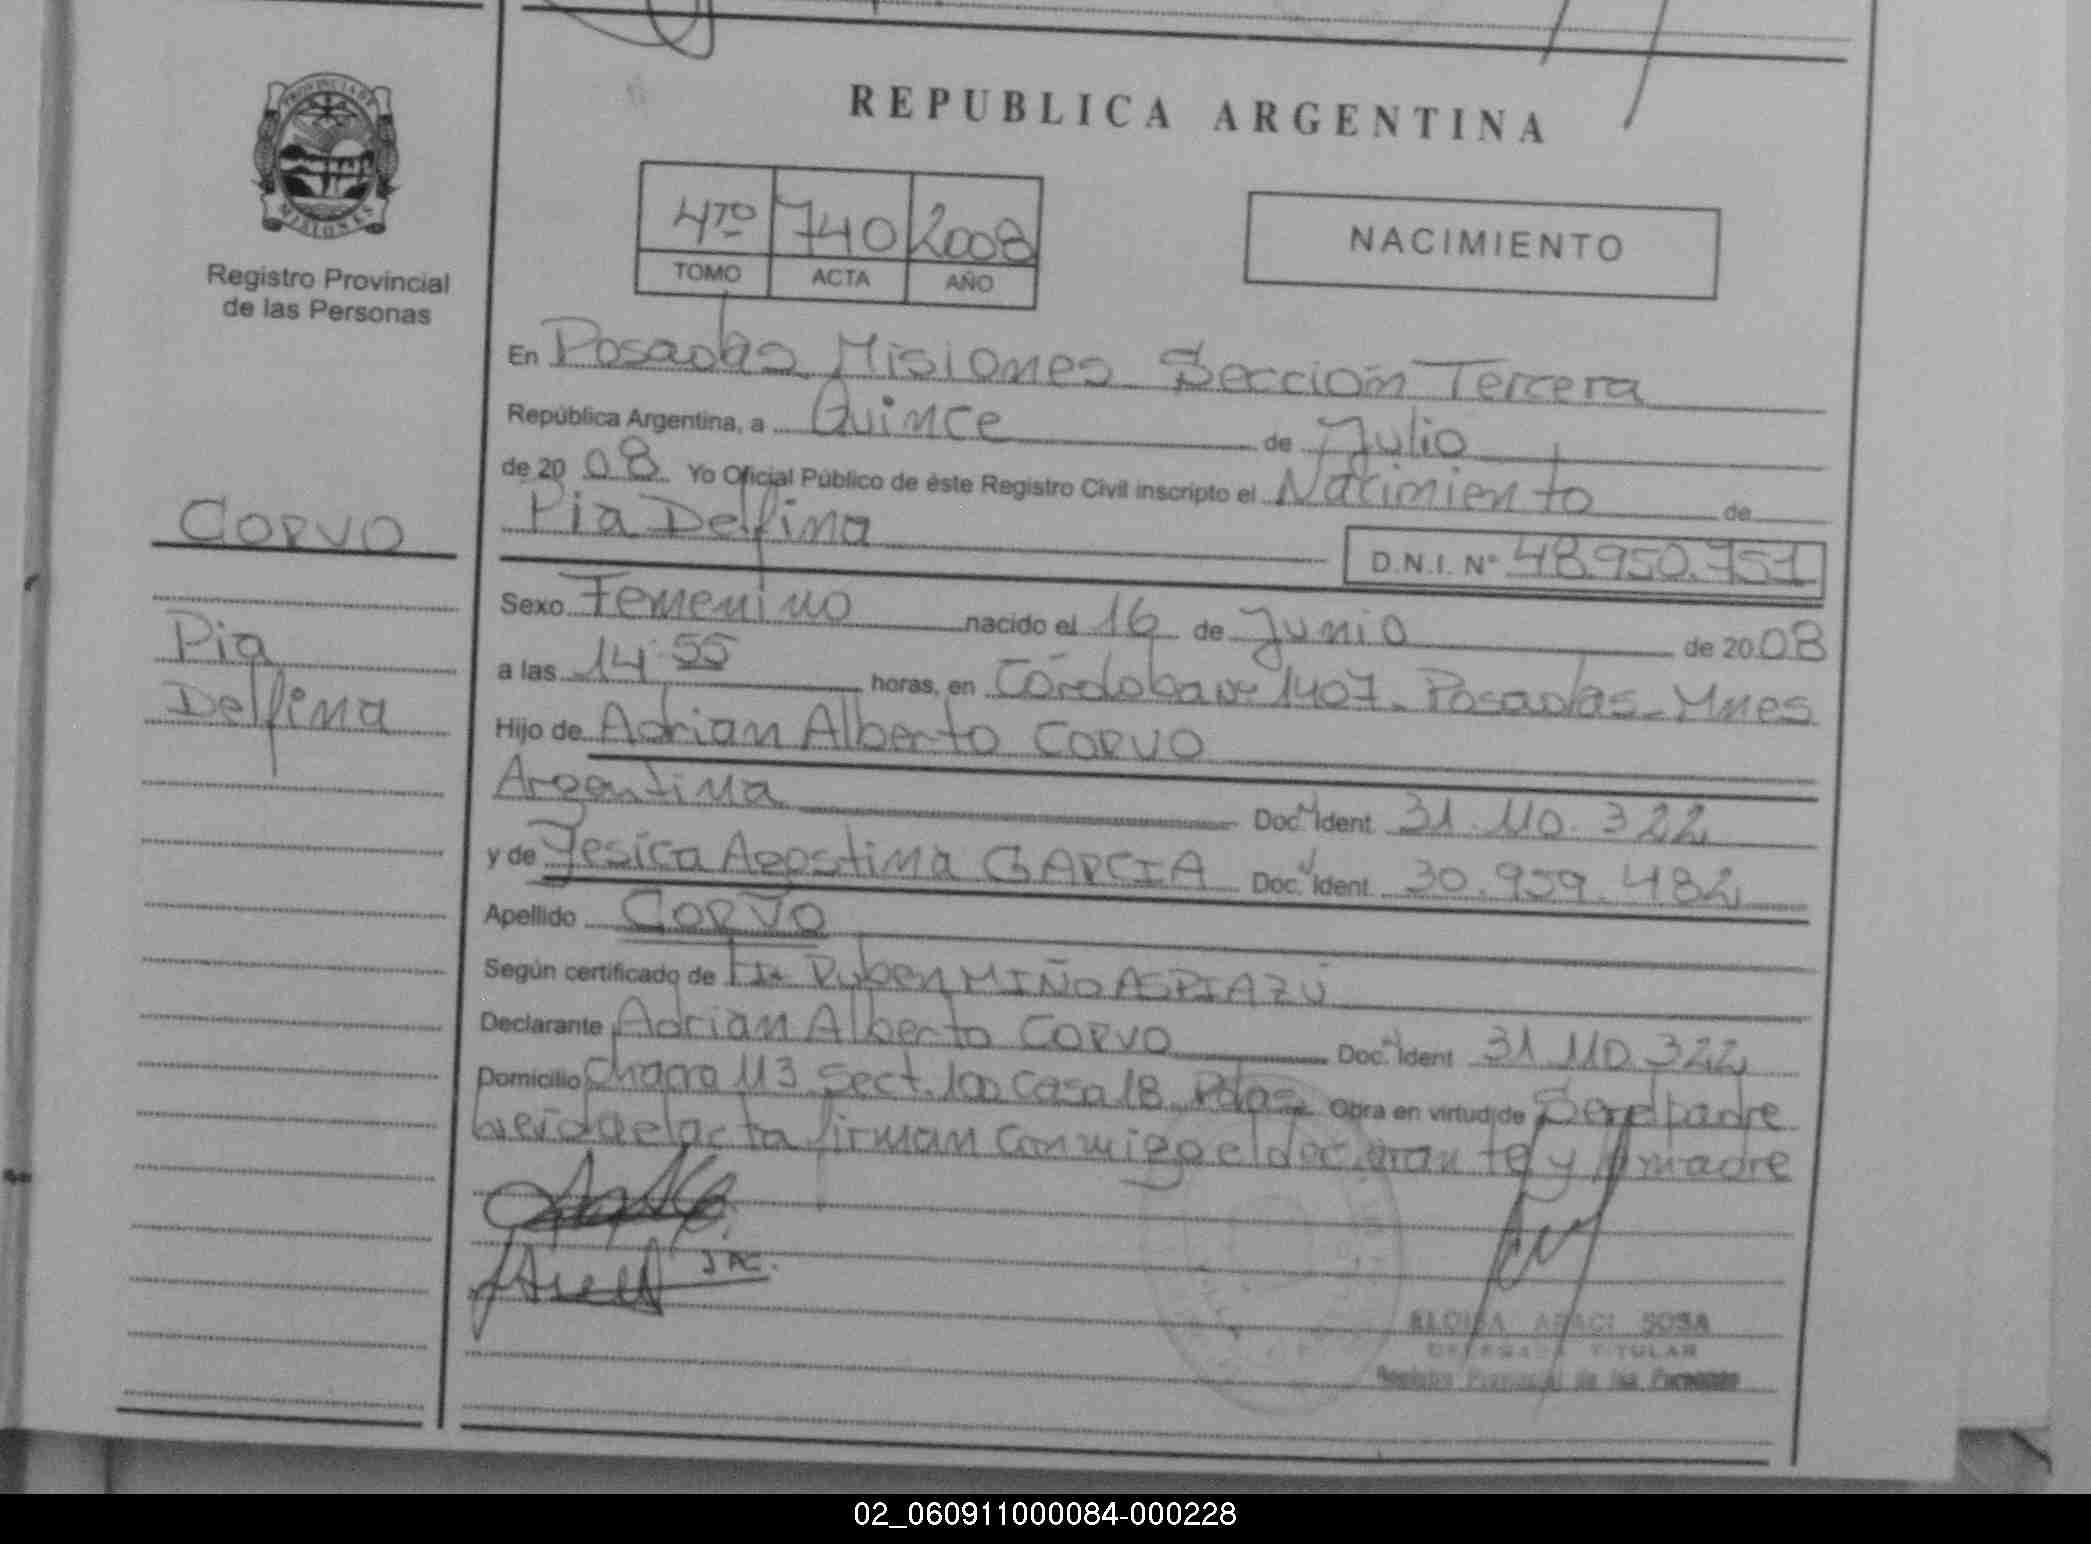 REPUBLICA ARGENTINA
PROVINCIA DE
MISIONES
Registro Provincial
de las Personas
4to 740 2008
TOMO ACTA AÑO
NACIMIENTO
En Posadas Misiones Sección Tercera
República Argentina, a Quince de Julio
de 20 08 Yo Oficial Público de éste Registro Civil inscripto el Nacimiento de
Pia Delfina
D.N.I. Nº 48.950.751
CORVO
Pia
Delfina
Sexo Femenino nacido el 16 de Junio de 20 08
a las 14:55 horas, en Córdoba Nº 1407. Posadas - Mnes
Hijo de Adrian Alberto CORVO
Argentina Doc. Ident 31.110.322
y de Yesica Agostina GARCIA Doc. Ident. 30.959.482
Apellido CORVO
Según certificado de Ruben MIÑO ASPIAZÚ
Declarante Adrian Alberto CORVO Doc. Ident 31.110.322
Domicilio Chacra 113 Sect. 100 Casa 18 Pdas Obra en virtud de Ser el padre
leida el acta firman conmigo el declarante y madre
ELOISA ARACI SOSA
DELEGADA TITULAR
Registro Provincial de las Personas
02_060911000084-000228